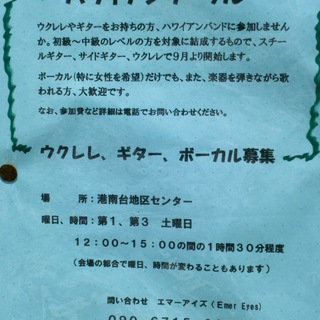 ウクレレやギターをお持ちの方、ハワイアンバンドに参加しません
か。初級〜中級のレベルの方を対象に結成するもので、スチー
ルギター、サイドギター、ウクレレで9月より開始します。
ボーカル(特に女性を希望)だけでも、また、楽器を弾きながら歌
われる方、大歓迎です。
なお、参加費など詳細は電話でお問い合わせください。
ウクレレ、ギター、ボーカル募集
場　所：港南台地区センター
曜日、時間：第1、第3　土曜日
12:00〜15:00の間の1時間30分程度
(会場の都合で曜日、時間が変わることもあります)
問い合わせ　エマーアイズ(Emer Eyes)